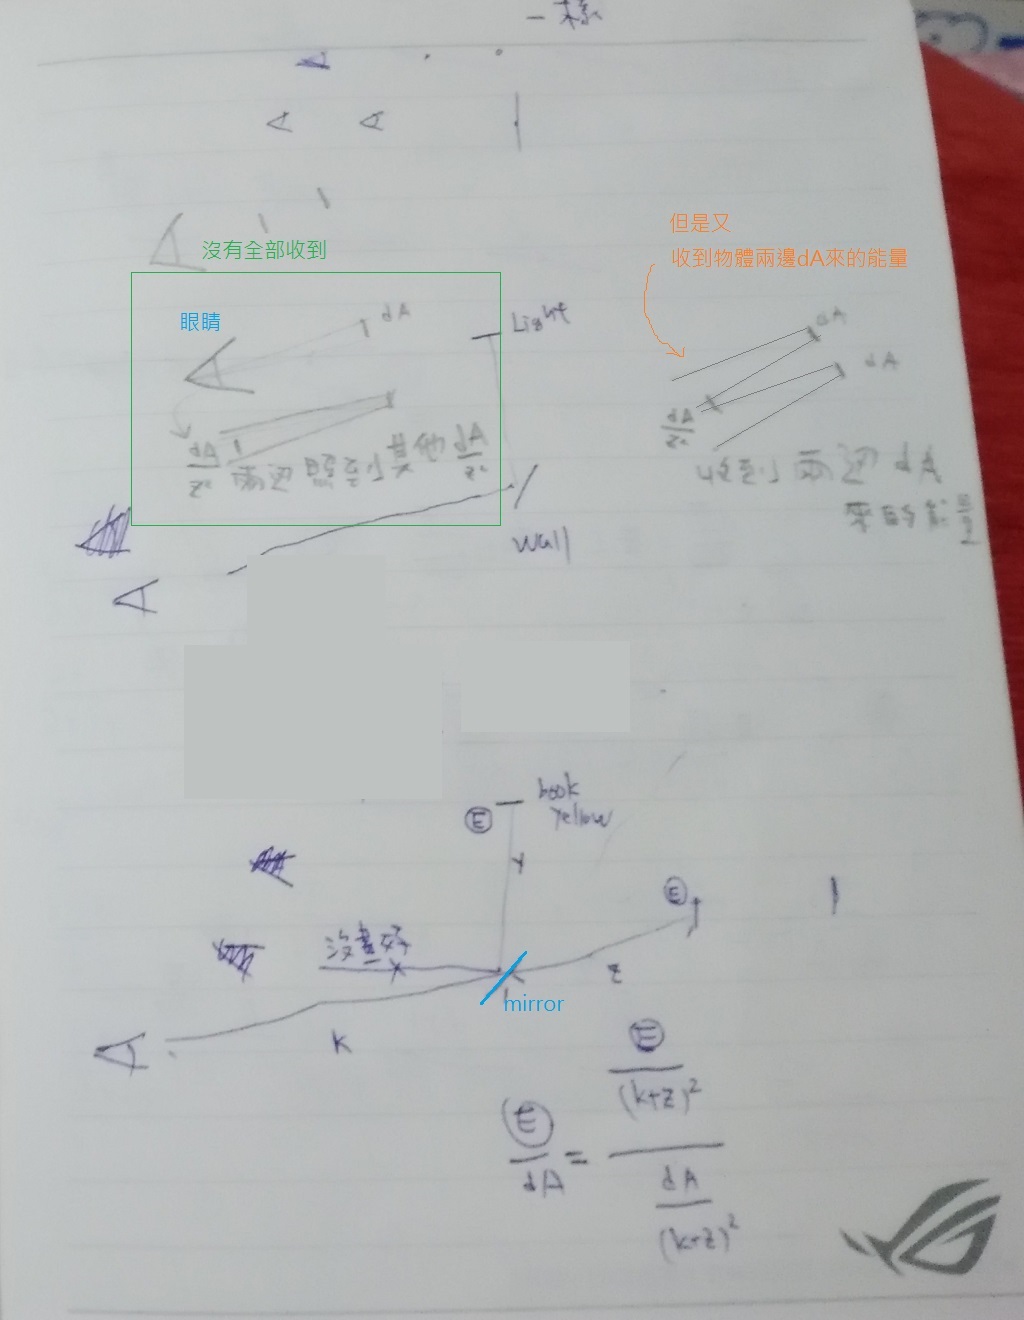 一樣
沒有全部收到
眼睛
dA
Light
dA/z² 兩边照到其他 dA/z²
wall
但是又
收到物體兩邊dA來的能量
dA
dA
dA/z²
收到兩边dA
來的能量
book
yellow
E
Y
E
沒畫好
x
z
mirror
k
E/dA = (E/(k+z)²)/(dA/(k+z)²)